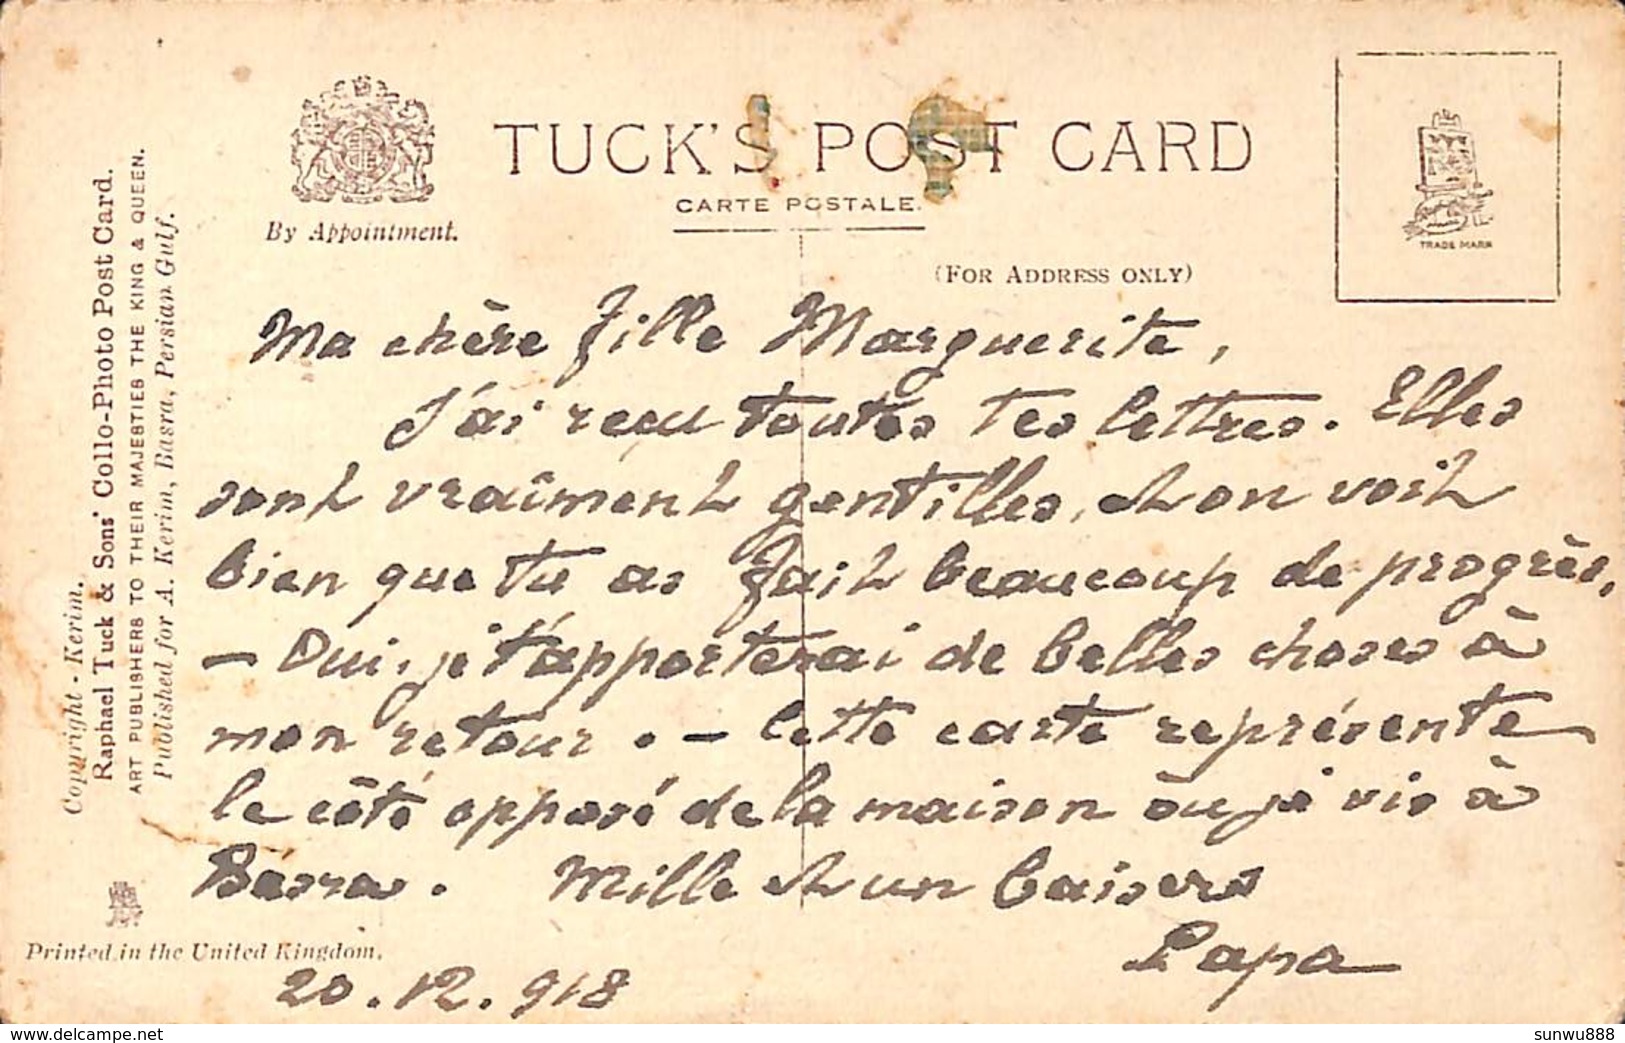 TUCK'S POST CARD
CARTE POSTALE.
By Appointment.
(FOR ADDRESS ONLY)
TRADE MARK
Copyright - Kerim.
Raphael Tuck & Sons' Collo-Photo Post Card.
ART PUBLISHERS TO THEIR MAJESTIES THE KING & QUEEN.
Published for A. Kerim, Basra, Persian Gulf.
Ma chère fille Marguerite,
J'ai reçu toutes tes lettres. Elles
sont vraiment gentilles, et on voit
bien que tu as fait beaucoup de progrès,
- Oui, je t'apporterai de belles choses à
mon retour. - Cette carte représente
le côté opposé de la maison òu je vis à
Basra. Mille et un baisers
Papa
Printed in the United Kingdom.
20.12.918
sunwu888